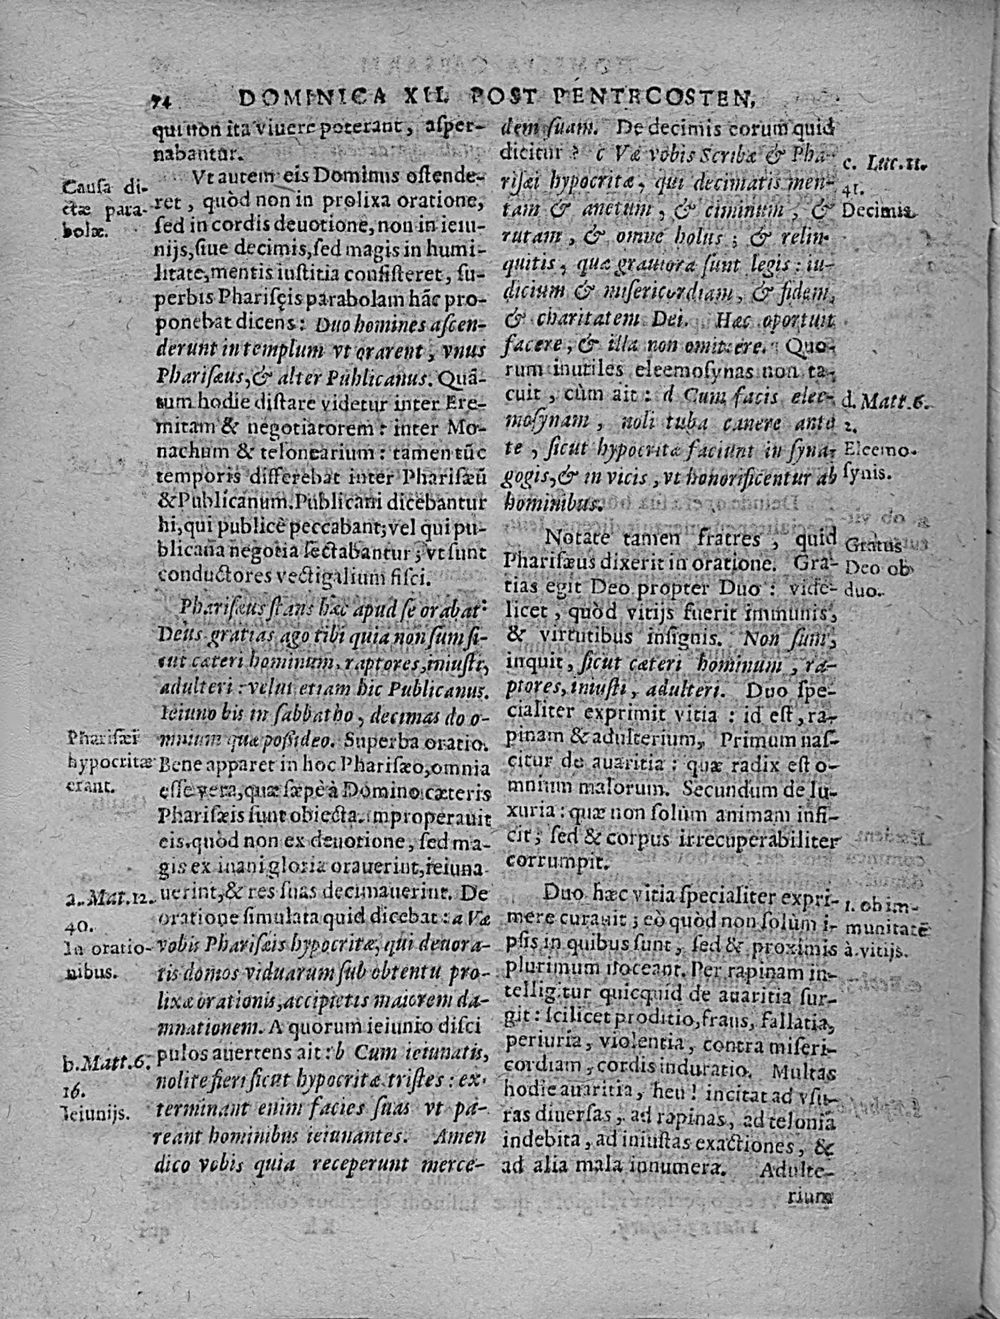 74 DOMINICA XII. POST PENTECOSTEN,
qui non ita viuere poterant, asper-
nabantur.
Vt autem eis Dominus ostende-
ret, quòd non in prolixa oratione,
sed in cordis deuotione, non in ieiu-
nijs, siue decimis, sed magis in humi-
litate, mentis iustitia consisteret, su-
perbis Pharisęis parabolam hãc pro-
ponebat dicens: Duo homines ascen-
derunt in templum vt orarent, vnus
Pharisæus, & alter Publicanus. Quã-
tum hodie distare videtur inter Ere-
mitam & negotiatorem: inter Mo-
nachum & telonearium: tamen tũc
temporis differebat inter Pharisæũ
& Publicanum. Publicani dicebantur
hi, qui publicè peccabant; vel qui pu-
blicana negotia sectabantur; vt sunt
conductores vectigalium fisci.
Pharisæus stans hæc apud se orabat:
Deus gratias ago tibi quia non sum si-
cut cæteri hominum, raptores, iniusti,
adulteri: velut etiam hic Publicanus.
Ieiuno bis in sabbatho, decimas do o-
mnium quæ possideo. Superba oratio.
Bene apparet in hoc Pharisæo, omnia
esse vera, quæ sæpè à Domino cæteris
Pharisæis sunt obiecta. improperauit
eis. quòd non ex deuotione, sed ma-
gis ex inani gloria orauerint, ieiuna-
uerint, & res suas decimauerint. De
oratione simulata quid dicebat: a Væ
vobis Pharisæis hypocritæ, qui deuora-
tis domos viduarum sub obtentu pro-
lixæ orationis, accipietis maiorem da-
mnationem. A quorum ieiunio disci
pulos auertens ait: b Cum ieiunatis,
nolite fieri sicut hypocritæ tristes: ex-
terminant enim facies suas vt pa-
reant hominibus ieiunantes. Amen
dico vobis quia receperunt merce-
Causa di-
ctæ para-
bolæ.
Pharisæi
hypocritæ
erant.
a. Mat. 12.
40.
In oratio-
nibus.
b. Matt. 6.
16.
Ieiunijs.
dem suam. De decimis eorum quid
dicitur? c Væ vobis Scribæ & Pha-
risæi hypocritæ, qui decimatis men-
tam & anetum, & ciminum, &
rutam, & omne holus; & relin-
quitis, quæ grauiora sunt legis: iu-
dicium & misericordiam, & fidem,
& charitatem Dei. Hæc oportuit
facere, & illa non omittere. Quo-
rum inutiles eleemosynas non ta-
cuit, cùm ait: d Cum facis elee-
mosynam, noli tuba canere ante
te, sicut hypocritæ faciunt in syna-
gogis, & in vicis, vt honorificentur ab
hominibus.
Notate tamen fratres, quid
Pharisæus dixerit in oratione. Gra-
tias egit Deo propter Duo: vide-
licet, quòd vitijs fuerit immunis,
& virtutibus insignis. Non sum,
inquit, sicut cæteri hominum, ra-
ptores, iniusti, adulteri. Duo spe-
cialiter exprimit vitia: id est, ra-
pinam & adulterium, Primum nas-
citur de auaritia: quæ radix est o-
mnium malorum. Secundum de lu-
xuria: quæ non solùm animam infi-
cit; sed & corpus irrecuperabiliter
corrumpit.
Duo hæc vitia specialiter expri-
mere curauit; eò quòd non solùm i-
psis in quibus sunt, sed & proximis
plurimum noceant. Per rapinam in-
telligitur quicquid de auaritia sur-
git: scilicet proditio, fraus, fallatia,
periuria, violentia, contra miseri-
cordiam, cordis induratio. Multas
hodie auaritia, heu! incitat ad vsu-
ras diuersas, ad rapinas, ad telonia
indebita, ad iniustas exactiones, &
ad alia mala innumera. Adulte-
rium
c. Luc. 11.
41.
Decimis.
d. Matt. 6.
2.
Eleemo-
synis.
Gratus
Deo ob
duo.
1. ob im-
munitatē
à vitijs.